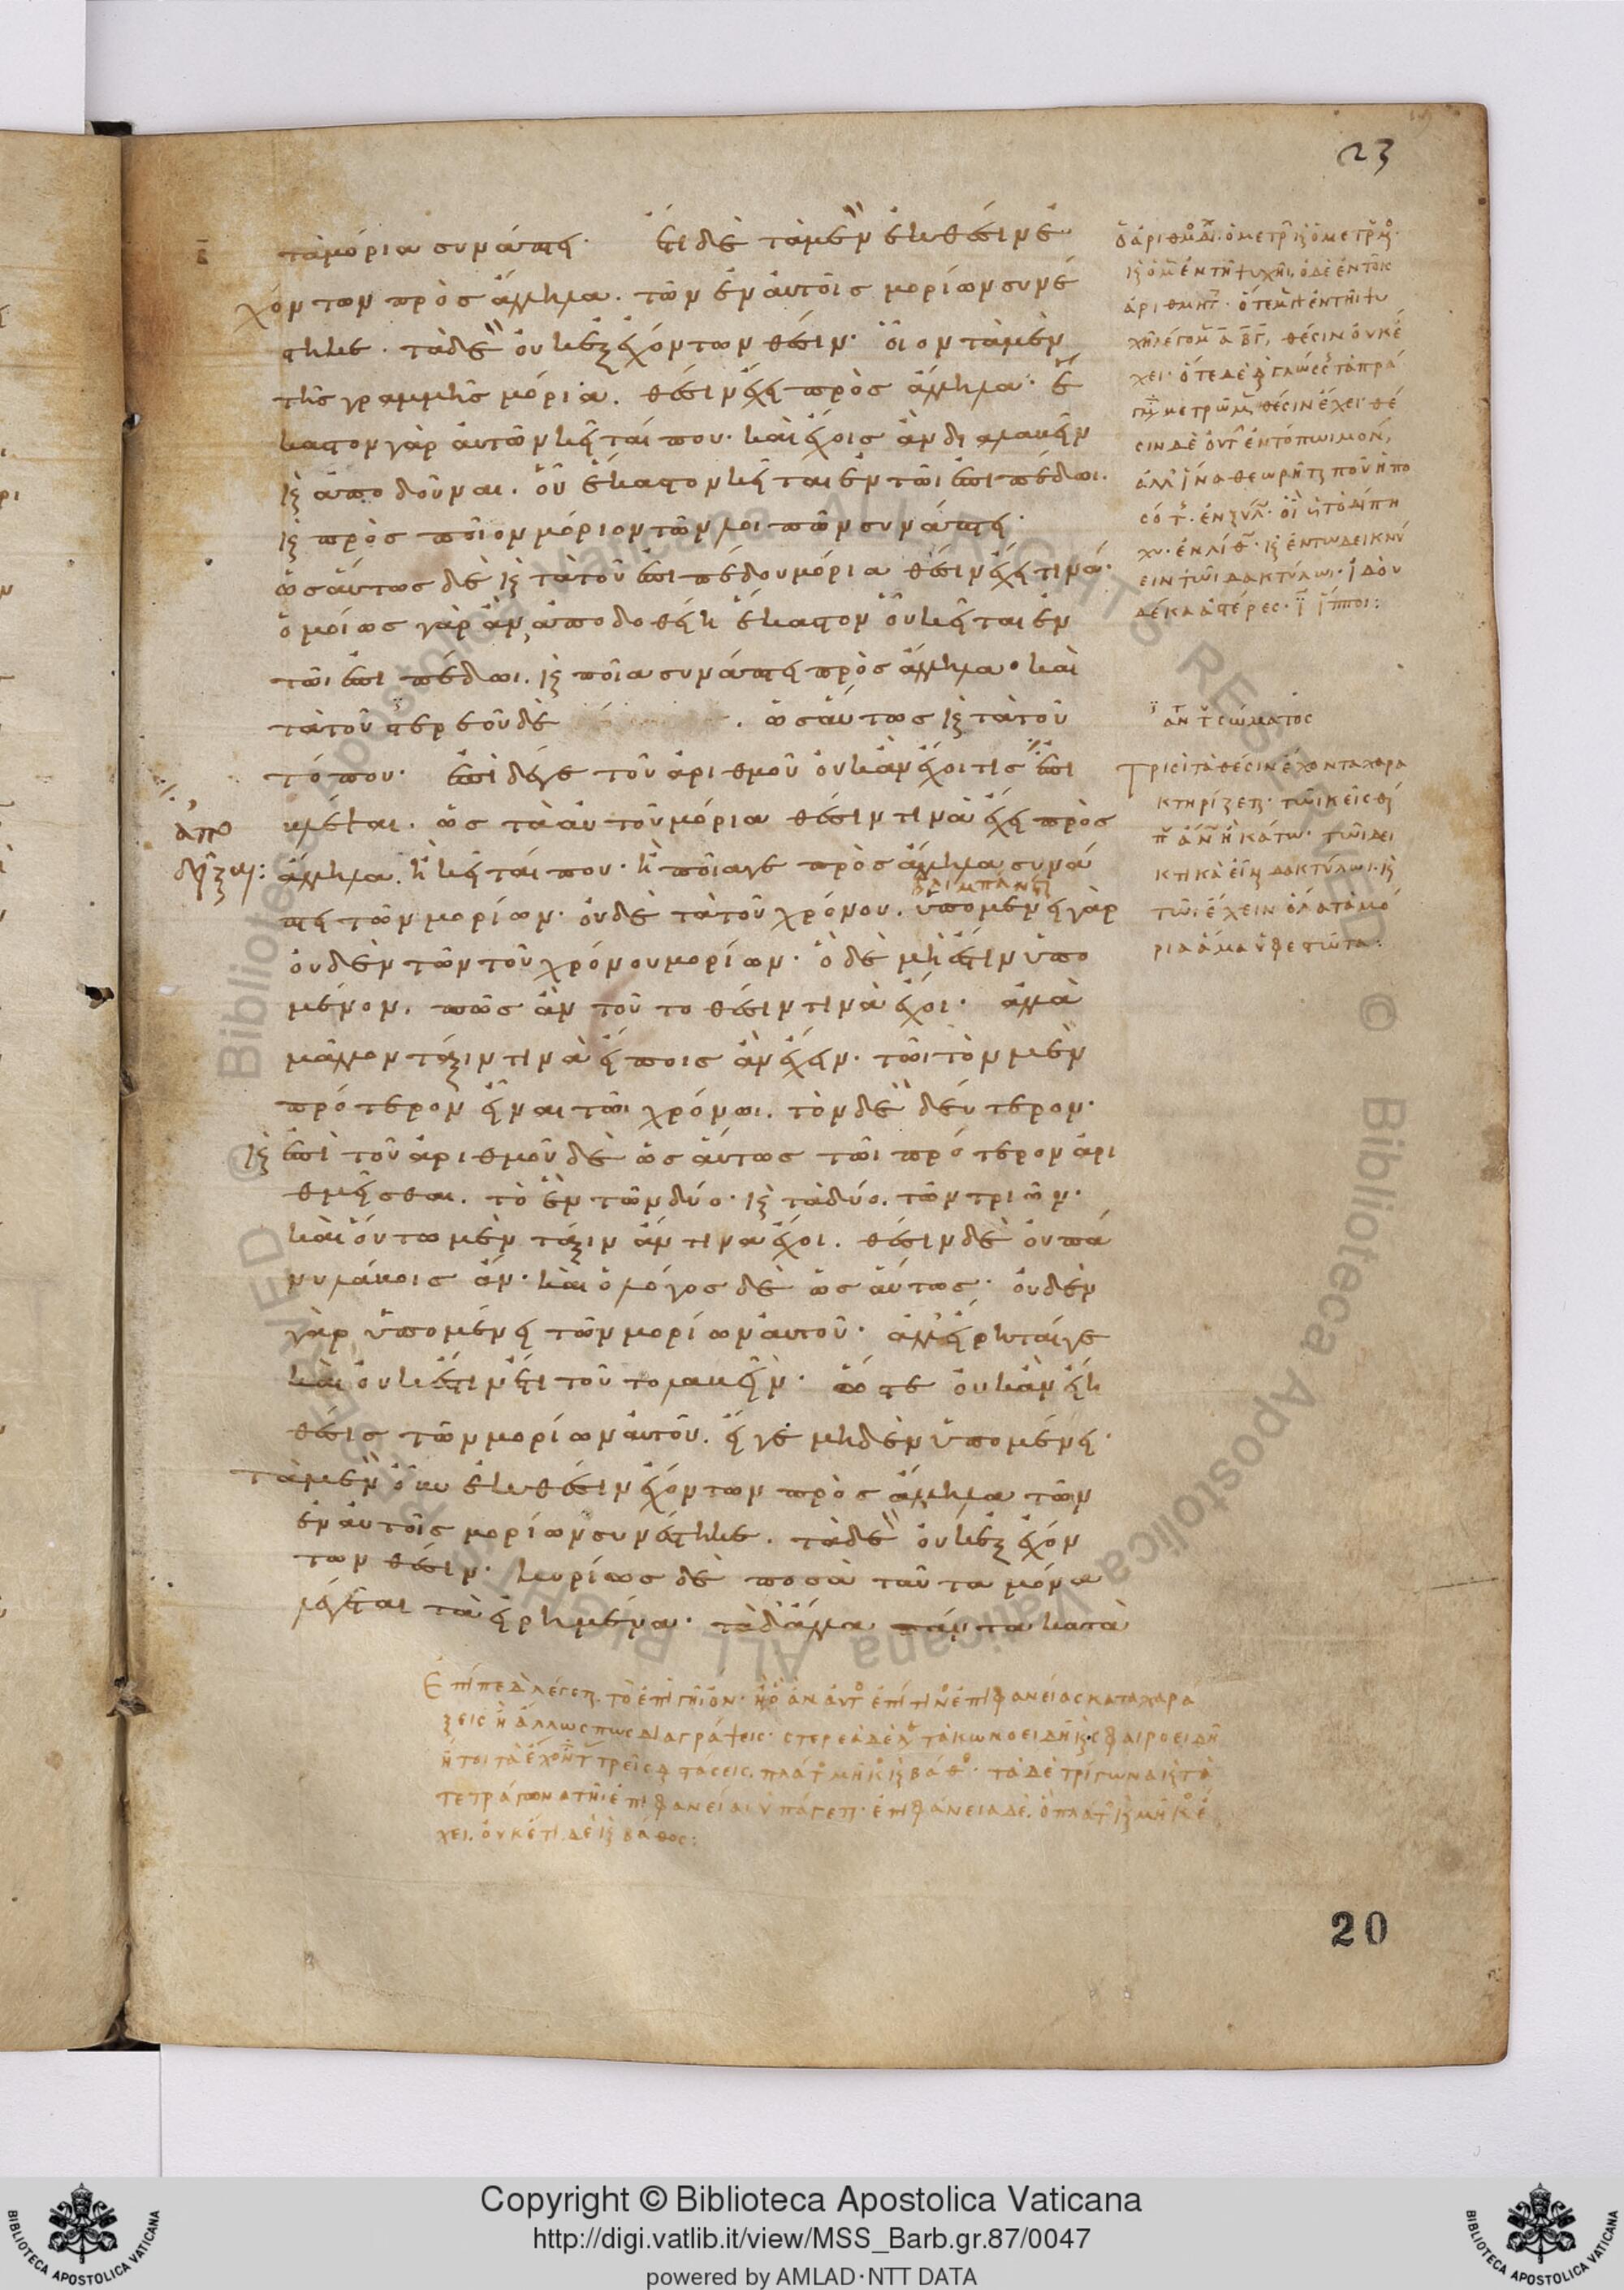 23
β̅
τὰ μόρια συνάπτει. ἔτι δὲ τὰ μὲν ἐκ θέσιν ἐ
χόντων πρὸς ἄλληλα. τῶν ἐν αὐτοῖς μορίων συνέ
στηκε. τὰ δὲ οὐκ ἐξ ἐχόντων θέσιν. οἷον τὰ μὲν
τῆς γραμμῆς μόρια. θέσιν ἔχει πρὸς ἄλληλα. ἕ
καστον γὰρ αὐτῶν κεῖταί που. καὶ ἔχοις ἂν διαλαβεῖν
καὶ ἀποδοῦναι. οὗ ἕκαστον κεῖται ἐν τῶι ἐπιπέδωι.
καὶ πρὸς ποῖον μόριον τῶν λοιπῶν συνάπτει.
ὡσαύτως δὲ καὶ τὰ τοῦ ἐπιπέδου μόρια θέσιν ἔχει τινά.
ὁμοίως γὰρ ἂν ἀποδοθείη ἕκαστον οὗ κεῖται ἐν
τῶι ἐπιπέδωι. καὶ ποῖα συνάπτει πρὸς ἄλληλα. καὶ
τὰ τοῦ στερεοῦ δὲ . ὡσαύτως καὶ τὰ τοῦ
τόπου. ἐπὶ δέ γε τοῦ ἀριθμοῦ οὐκ ἂν ἔχοι τις ἐπι
ἀπο
βλέψαι. ὡς τὰ αὐτοῦ μόρια θέσιν τινὰ ἔχει πρὸς
δεῖξαι:
ἄλληλα. ἢ κεῖταί που. ἢ ποῖά γε πρὸς ἄλληλα συνά
πτει τῶν μορίων. οὐδὲ τὰ τοῦ χρόνου. ὑπομένει γὰρ
οὐδὲν τῶν τοῦ χρόνου μορίων. ὃ δὲ μή ἐστιν ὑπο
μένον. πῶς ἂν τοῦτο θέσιν τινὰ ἔχοι. ἀλλὰ
μᾶλλον τάξιν τινὰ εἴποις ἂν ἔχειν. τῶι τὸν μὲν
πρότερον εἶναι τῶι χρόνωι. τὸν δὲ δεύτερον.
καὶ ἐπὶ τοῦ ἀριθμοῦ δὲ ὡσαύτως τῶι πρότερον ἀρι
θμεῖσθαι. τὸ ἓν τῶν δύο. καὶ τὰ δύο. τῶν τριῶν.
καὶ οὕτω μὲν τάξιν ἄν τινα ἔχοι. θέσιν δὲ οὐ πά
νυ λάβοις ἄν. καὶ ὁ λόγος δὲ ὡσαύτως. οὐδὲν
γὰρ ὑπομένει τῶν μορίων αὐτοῦ. ἀλλ' εἴρηταί γε
καὶ οὐκ ἔστιν ἔτι τοῦτο λαβεῖν. ὥστε οὐκ ἂν εἴη
θέσις τῶν μορίων αὐτοῦ. εἴ γε μηδὲν ὑπομένει.
τὰ μὲν οὖν ἐκ θέσιν ἐχόντων πρὸς ἄλληλα τῶν
ἐν αὐτοῖς μορίων συνέστηκε. τὰ δὲ οὐκ ἐξ ἐχόν
των θέσιν. κυρίως δὲ ποσὰ ταῦτα μόνα
λέγεται τὰ εἰρημένα. τὰ δ' ἄλλα πάντα κατὰ
θέσιν οὐκ ἔ
θέσιν ἔχει
ἀλλ' ἵνα θεωρῆται ποῦ ἢ πο
καὶ ἐν τῶ δεικνύ
ειν τῶι δακτύλωι. ἰδοὺ
δέκα ἀστέρες. ϊ ἵπποι:
ἀν τ σώματος
Τρισὶ τὰ θέσιν ἔχοντα χαρα
κτηρίζεται. τῶι κεῖσθαί
που ἄνω ἢ κάτω. τῶι δει
κτικὰ εἶναι δακτύλωι. καὶ
τῶι ἔχειν ὅλα τὰ μό
ρια ἅμα ὑφεστῶτα:
Ἐπίπεδα λέγεται. τὸ ἐπὶ γῆς ὂν. ἐπί τινος ἐπιφανείας καταχαρά
ξεις ἢ ἄλλως πως διαγράψεις. στερεὰ δὲ τὰ κωνοειδῆ καὶ σφαιροειδῆ
ἤτοι τὰ ἔχοντα τρεῖς διαστάσεις. πλάτος μῆκος καὶ βάθος. τὰ δὲ τρίγωνα καὶ τὰ
τετράγωνα τῆι ἐπιφανείαι ὑπάγεται. ἐπιφάνεια δὲ. ὃ πλάτος καὶ μῆκος ἔ
χει. οὐκέτι δὲ καὶ βάθος:
20
Copyright © Biblioteca Apostolica Vaticana
http://digi.vatlib.it/view/MSS_Barb.gr.87/0047
powered by AMLAD·NTT DATA